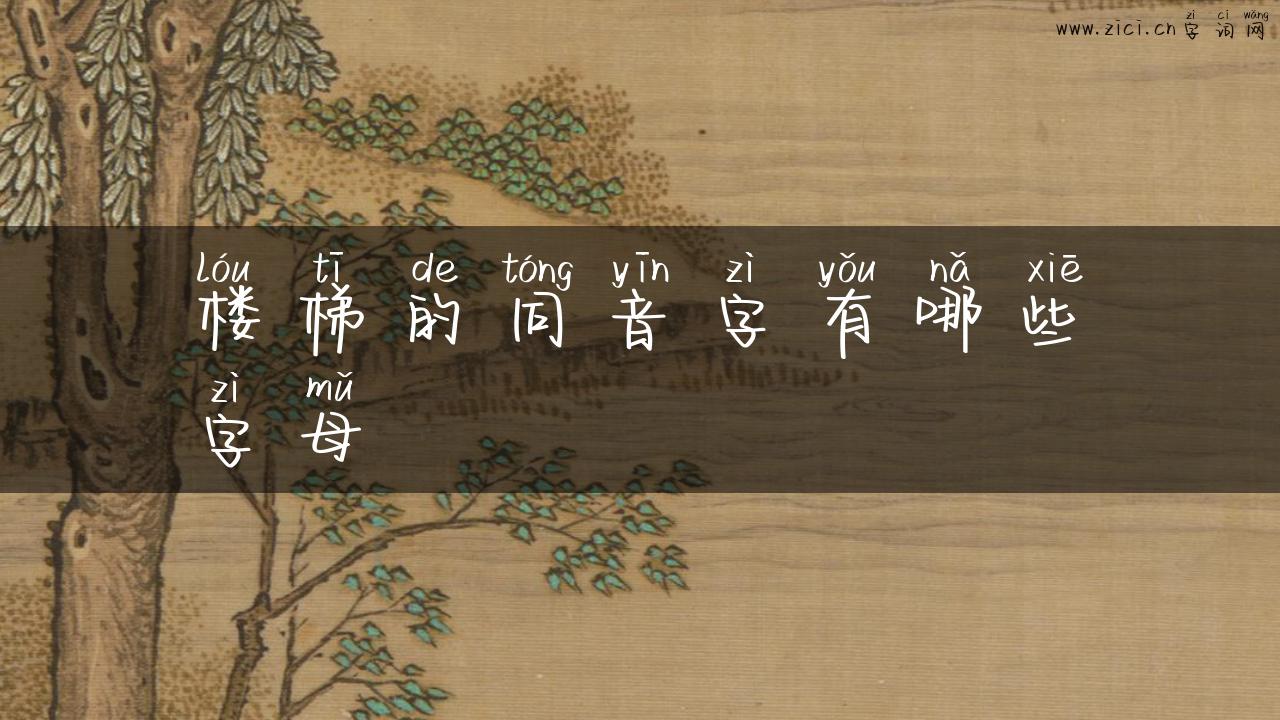 zì cí wǎng
www.zici.cn 字词网
lóu tī de tóng yīn zì yǒu nǎ xiē
楼梯的同音字有哪些
zì mǔ
字母